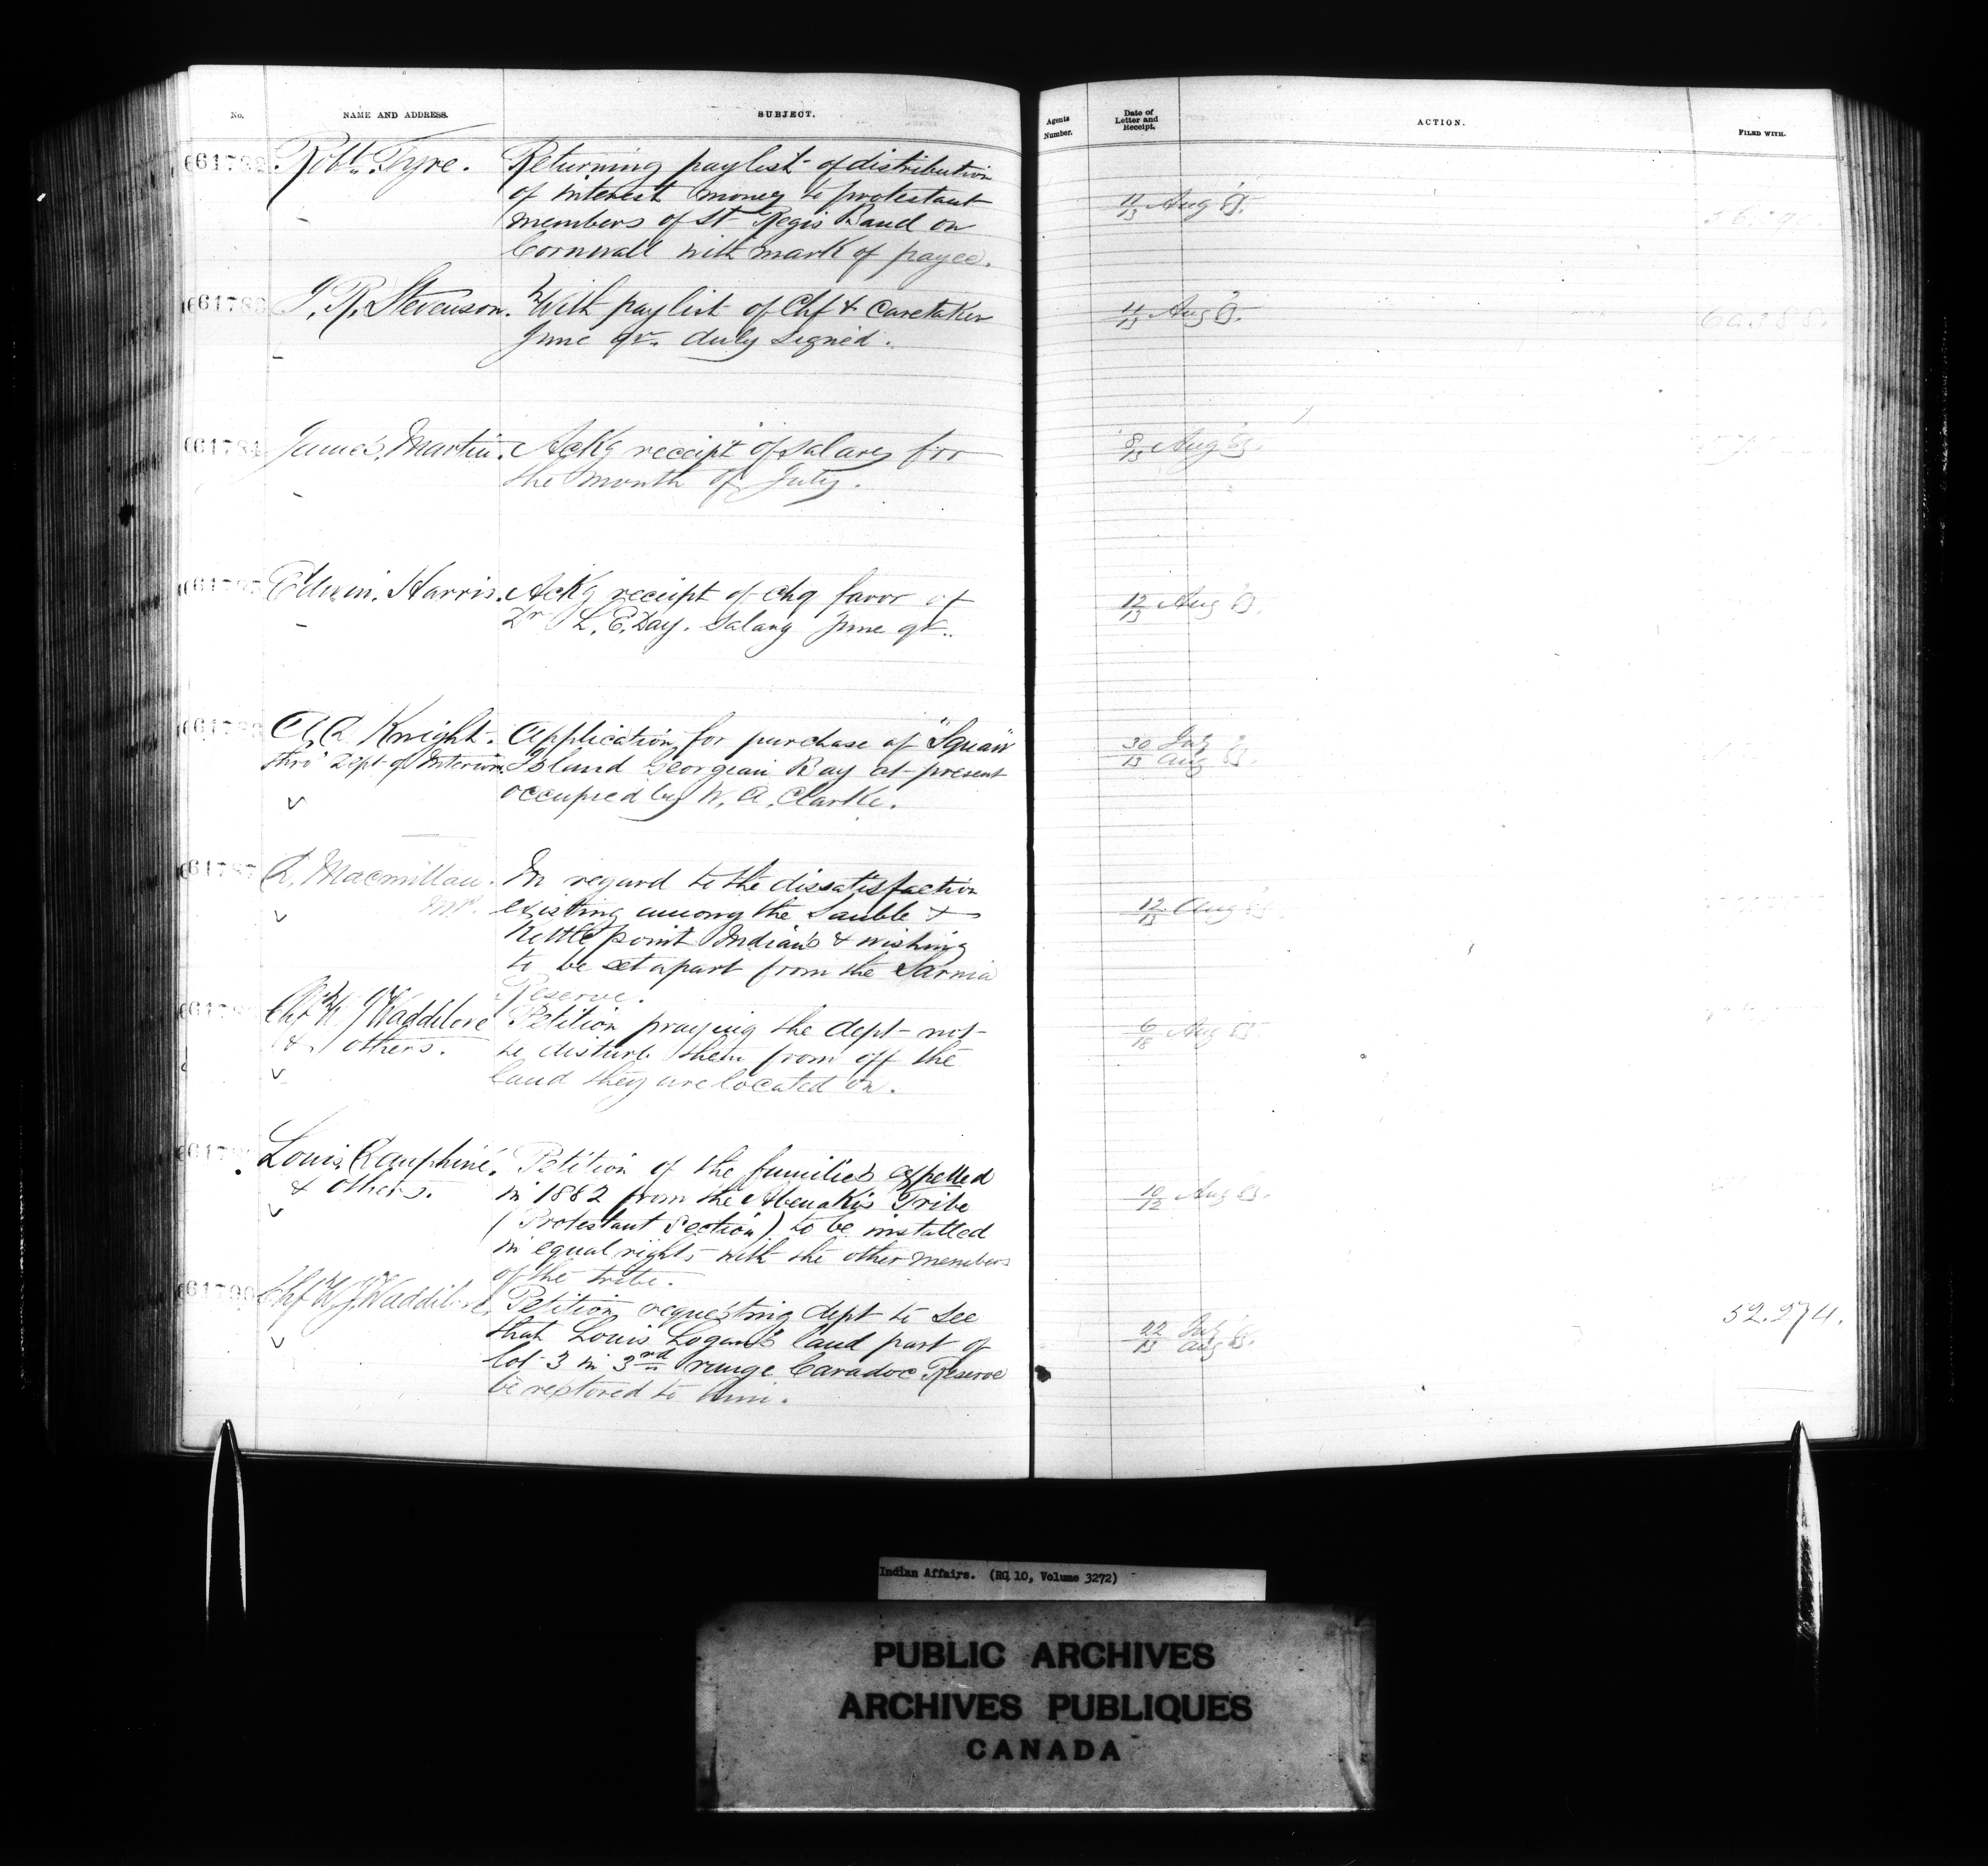 No. NAME AND ADDRESS. SUBJECT. Agents Number. Date of Letter and Receipt. ACTION. FILED WITH.
61782 Robt. Tyre. Returning paylist of distribution
of interest money to protestant
members of St Regis Band on
Cornwall with mark of payee.
11/13 Aug
61783 J. R. Stevenson. With paylist of Chf & Caretaker
June qr. duly signed.
11/13 Aug
60.388.
61784 James Martin. Ackg receipt of salary for
the month of July.
8/13 Aug
Edwin Harris. Ackg receipt of chq favor of
Dr L. E. Day. Salary June qr.
12/13 Aug
Knight. Application for purchase of "Squaw"
thro' Dept of Interior. Island Georgian Bay at present
occupied by W. A. Clarke.
30 July
13 Aug
61787 Macmillan. In regard to the dissatisfaction
existing among the Sauble &
Kettle point Indians & wishing
to be set apart from the Sarnia
Reserve.
12/13 Aug
Chf W J Waddilove Petition praying the dept not
& others. to disturb them from off the
land they are located on.
Aug
Louis & others. Petition of the families expelled
in 1882 from the Abenakis Tribe
(Protestant Section) to be installed
in equal rights with the other members
of the tribe.
10/12 Aug
61790 Chf W J Waddilove. Petition requesting dept to see
that Louis Logan's land part of
lot 3 in 3rd range Caradoc Reserve
be restored to him.
22 July
13 Aug
52.274.
Indian Affairs. (RG 10, Volume 3272)
PUBLIC ARCHIVES
ARCHIVES PUBLIQUES
CANADA